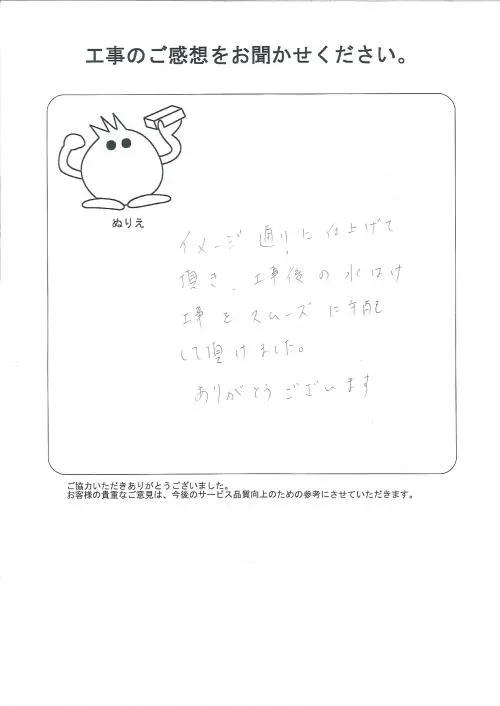 工事のご感想をお聞かせください。
ぬりえ
イメージ通りに仕上げて
頂き、工事後の水はけ
工事をスムーズに手配
して頂けました。
ありがとうございます
ご協力いただきありがとうございました。
お客様の貴重なご意見は、今後のサービス品質向上のための参考にさせていただきます。